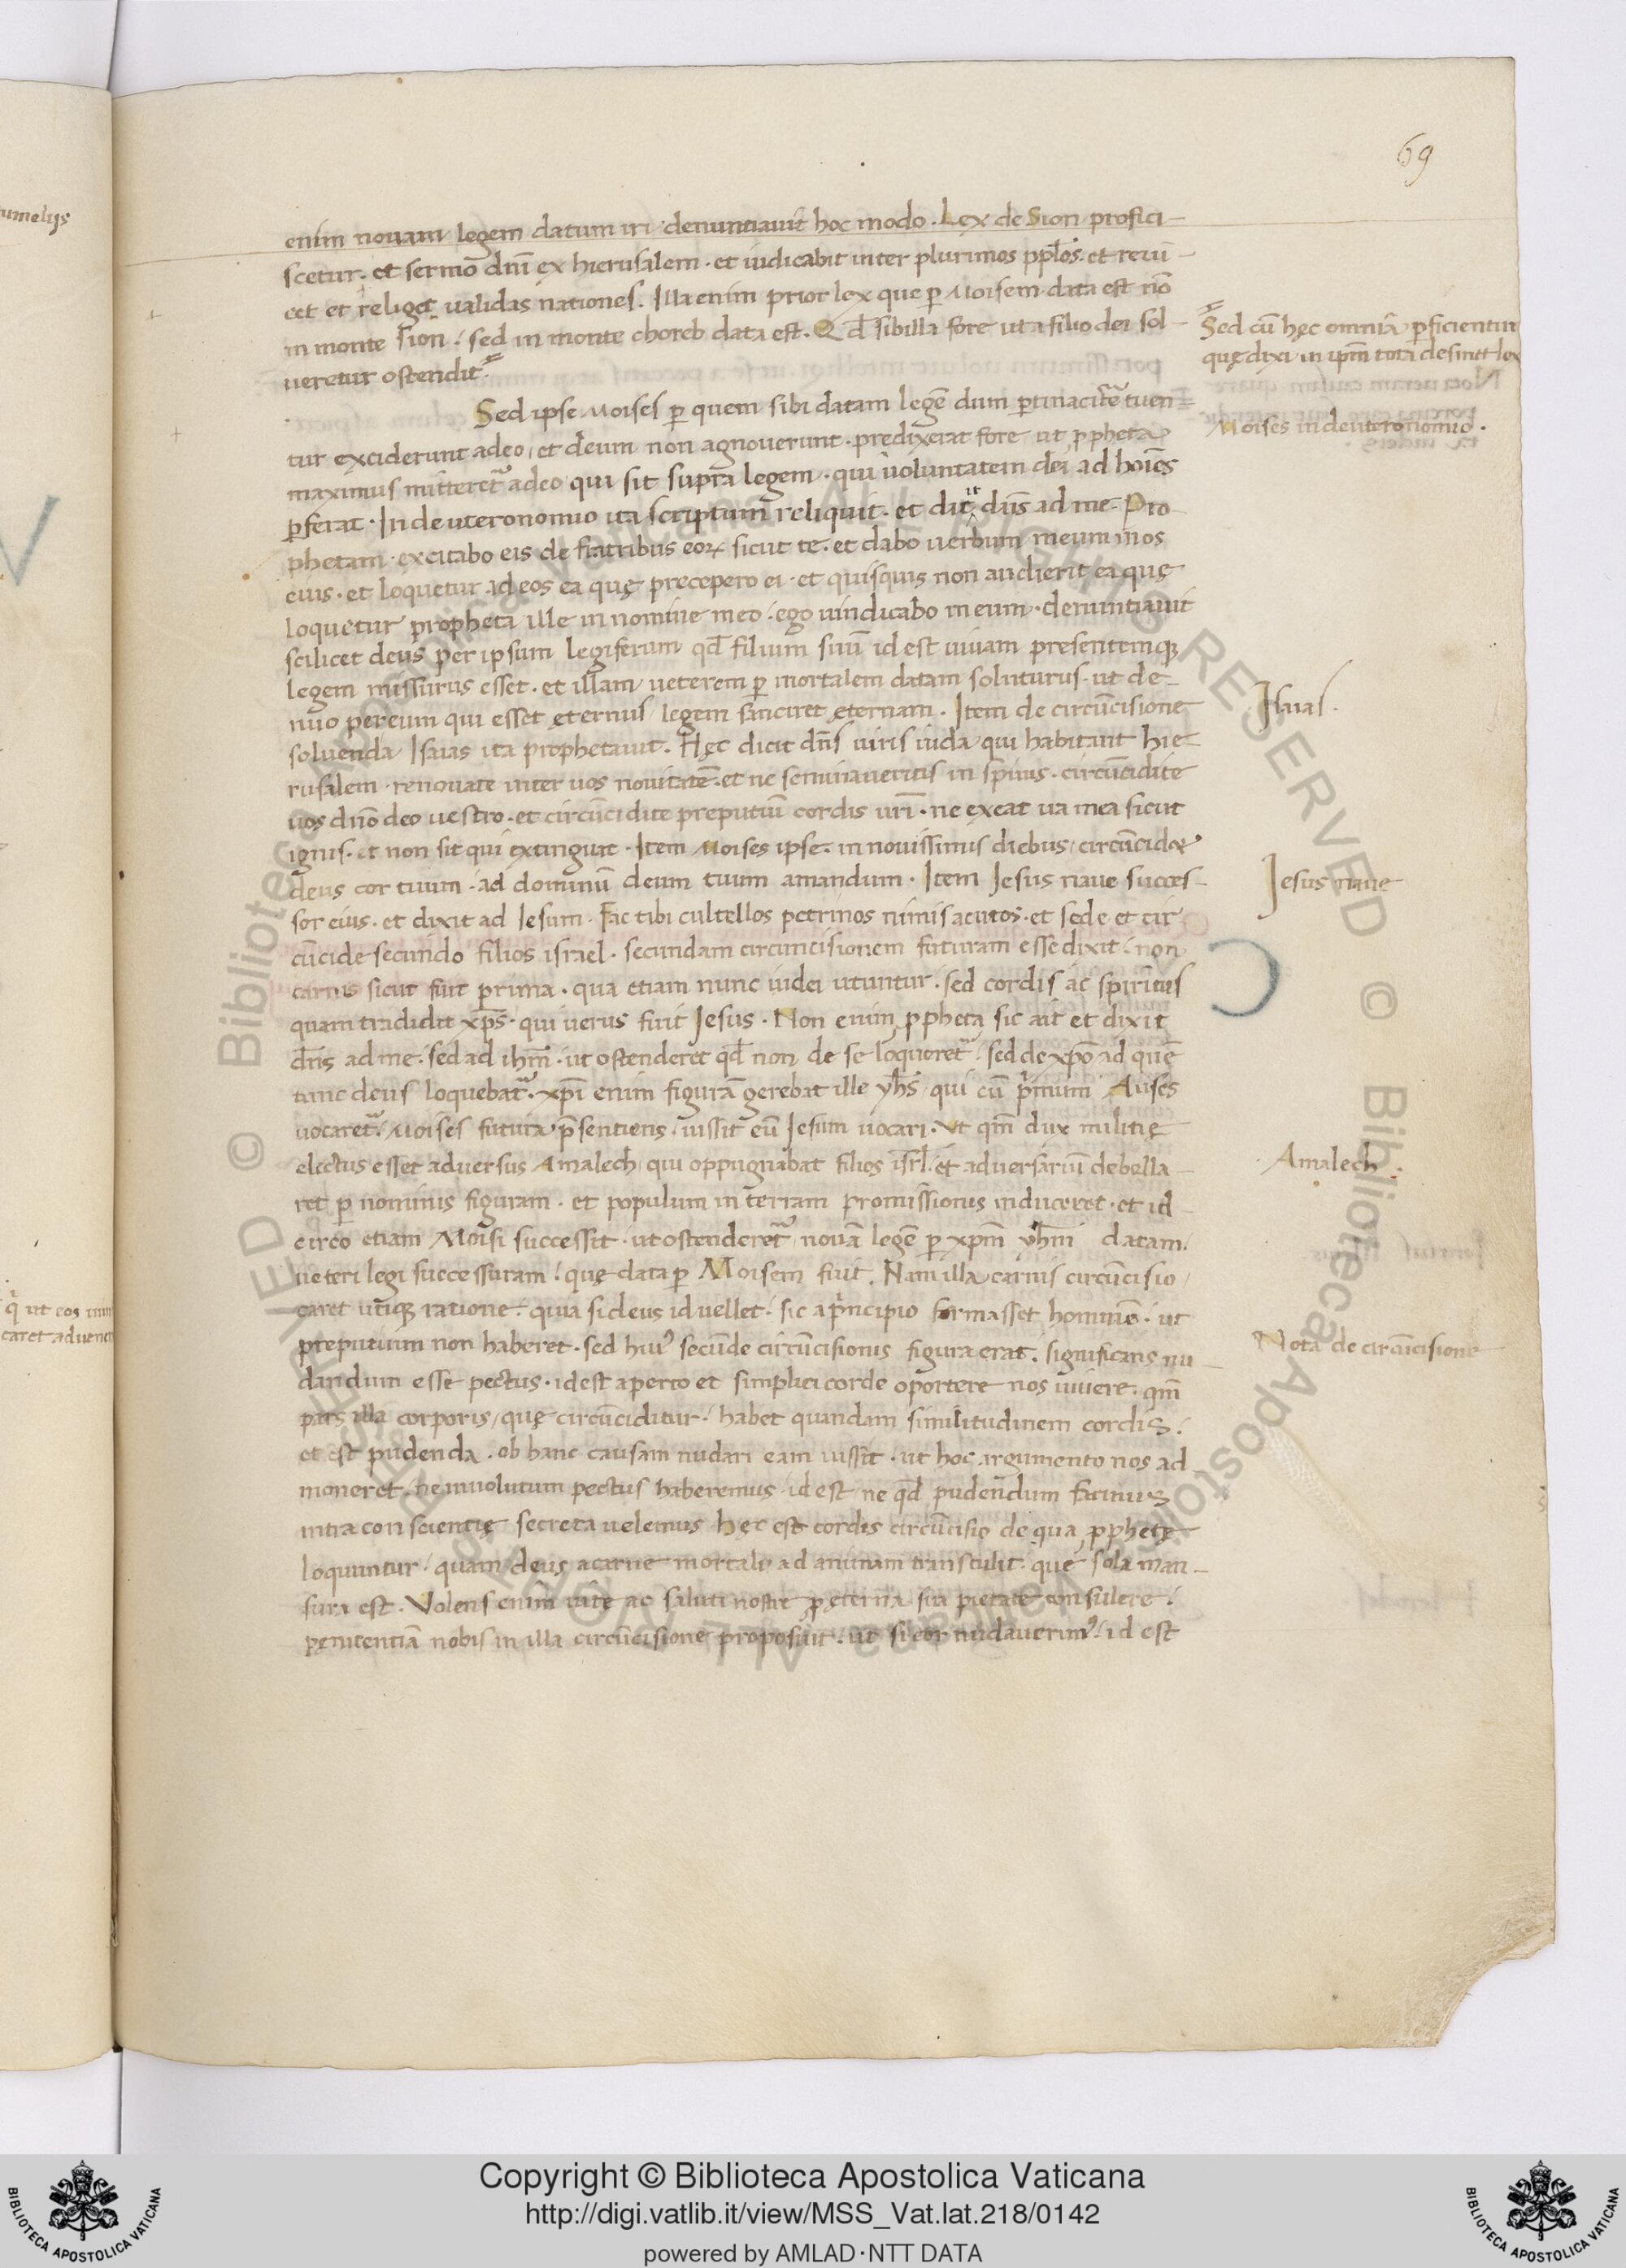 69
enim novam legem datum iri denuntiavit hoc modo. Lex de Sion profici-
scetur. et sermo dnī ex hierusalem. et iudicabit inter plurimos pplōs. et revī-
cet et religet validas nationes. Illa enim prior lex que p̱ Moisem data est nō
in monte sion / sed in monte choreb data est. Qd̄ sibilla fore ut a filio dei sol-
veretur ostendit.
Sed cū hęc omnia p̱ficientur
quę dixi in ipm̄ tota desinet lex
Sed ipse Moises p̱ quem sibi datam legē dum p̱tinacit̄ tuen-
Moises in deuteronomio.
tur exciderunt a deo / et deum non agnoverunt. predixerat fore ut ppheta
maximus mitteret᷑ a deo qui sit supra legem. qui voluntatem dei ad hoīes
p̱ferat. In deuteronomio ita scriptum reliquit. et dixit dn̄s ad me. Pro-
phetam excitabo eis de fratribus eoꝝ sicut te. et dabo verbum meum in os
eius. et loquetur ad eos ea quę precepero ei. et quisquis non audierit ea quę
loquetur propheta ille in nomine meo. ego vindicabo meum. denuntiavit
scilicet deus per ipsum legiferum qd̄ filium suū id est vivam presentemqꝫ
legem missurus esset. et illam veterem p̱ mortalem datam soluturus. ut de-
nuo per eum qui esset ęternus legem sanciret ęternam. Item de circūcisione
Isaias.
solvenda Isaias ita prophetavit. Hęc dicit dn̄s viris iuda qui habitant hie-
rusalem. renovate inter vos novitatē. et ne seminaveritis in spinis. circūcidite
vos dnō deo vestro. et circūcidite preputiū cordis vrī. ne exeat ira mea sicut
ignis. et non sit qui extinguat. Item Moises ipse. in novissimis diebus circūcidet
deus cor tuum. ad dominū deum tuum amandum. Item Jesus nave succes-
Jesus nave
sor eius. et dixit ad Iesum. Fac tibi cultellos petrinos nimis acutos. et sede et cir
cūcide secundo filios israel. secundam circuncisionem futuram esse dixit / non
carnis sicut fuit prima. qua etiam nunc iudei utuntur. sed cordis ac spiritus
quam tradidit xp̄s. qui verus fuit Jesus. Non enim ppheta sic ait et dixit
dn̄s ad me. sed ad ihm̄. ut ostenderet qd̄ non de se loqueret᷑. sed de xpō ad quē
tunc deus loquebat᷑. xpī enim figurā gerebat ille yhs̄ qui cū primum Auses
vocaret᷑. Moises futura p̄sentiens. iussit eū Jesum vocari. ut qm̄ dux militię
electus esset adversus Amalech qui oppugnabat filios isrl̄. et adversariū debella-
Amalech.
ret p̱ nominis figuram. et populum in terram promissionis induceret. et id-
circo etiam Moisi successit. ut ostenderet᷑ novā legē p̱ xpm̄ yhm̄ datam.
veteri legi successuram / quę data p̱ Moisem fuit. Nam illa carnis circūcisio /
caret utiqꝫ ratione. quia si deus id vellet. sic a principio formasset hominē. ut
preputium non haberet. sed huiꝰ secūde circūcisionis figura erat. significans nu-
Nota de circūcisione
dandum esse pectus. id est aperto et simplici corde oportere nos vivere. qm̄
pars illa corporis / quę circūciditur. habet quandam similitudinem cordis.
et est pudenda. ob hanc causam nudari eam iussit. ut hoc argumento nos ad-
moneret. ne involutum pectus haberemus / id est ne qd̄ pudendum facinus
intra conscientię secreta velemus hęc est cordis circūcisio de qua pphetę
loquuntur. quam deus a carne mortali ad animam transtulit. que sola man-
sura est. Volens enim vitę ac saluti nostrę p̱ ęterna sua pietate consulere.
penitentiā nobis in illa circūcisione proposuit. ut si cor nudaverimꝰ / id est
Copyright © Biblioteca Apostolica Vaticana
http://digi.vatlib.it/view/MSS_Vat.lat.218/0142
powered by AMLAD·NTT DATA